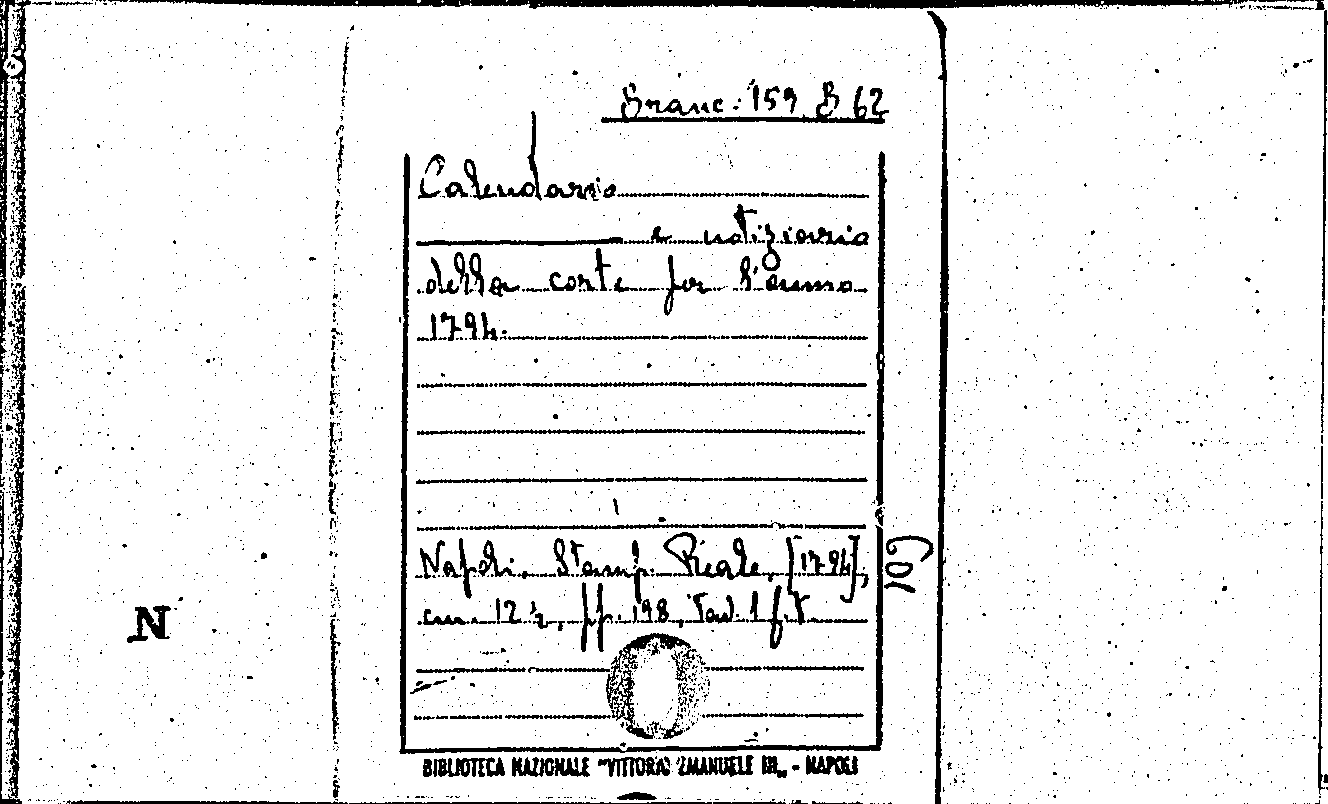 Branc. 159 B 62
Calendario
e notiziario
della corte per l'anno
1794.
Napoli, Stamp. Reale, [1794],
cm. 12 ½, pp. 198, Tav. 1 f.T.
N
BIBLIOTECA NAZIONALE "VITTORIO EMANUELE III„ - NAPOLI